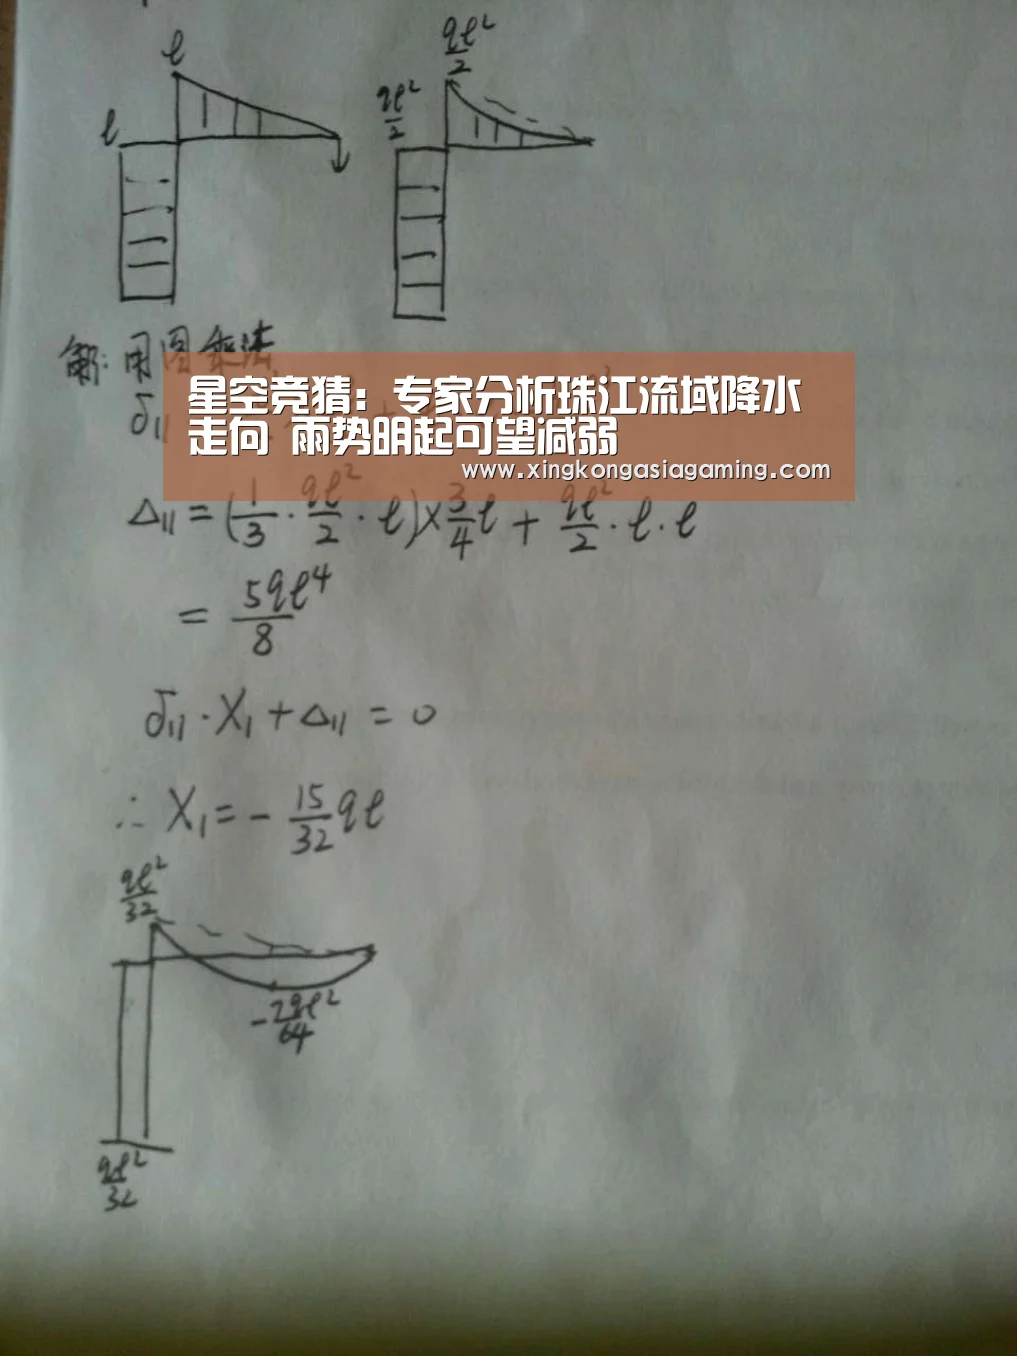 l
ql²/2
l
ql²/2
解:用图乘法
δ₁₁
星空竞猜:专家分析珠江流域降水
走向 雨势明起可望减弱
www.xingkongasiagaming.com
Δ₁₁ = (1/3 · ql²/2 · l) × 3/4 l + ql²/2 · l · l
= 5ql⁴/8
δ₁₁ · X₁ + Δ₁₁ = 0
∴ X₁ = - 15/32 ql
ql²/32
ql²/32